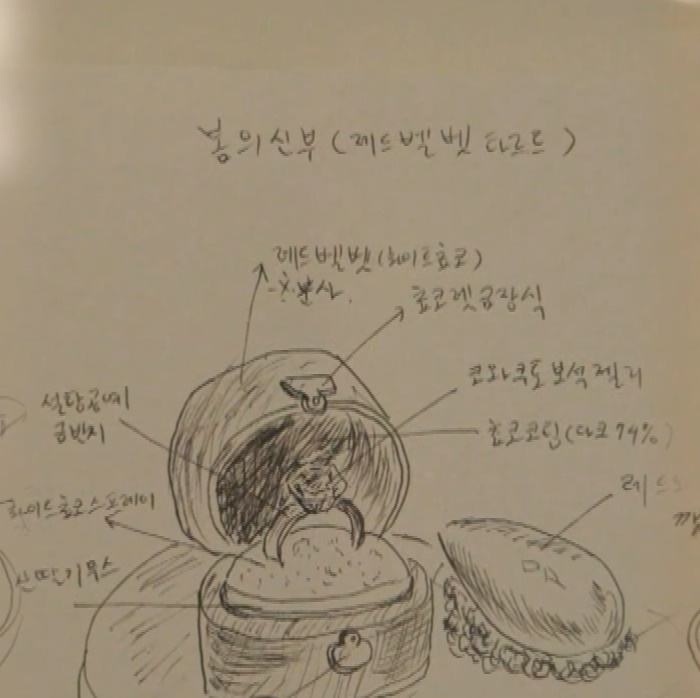 봄의신부 (레드벨벳 타르트)
레드벨벳(화이트초코)
분사.
초코렛금장식
코와쿠토 보석 젤리
설탕공예
금반지
초코코팅(다크 74%)
화이트초코스프레이
산딸기무스
레드